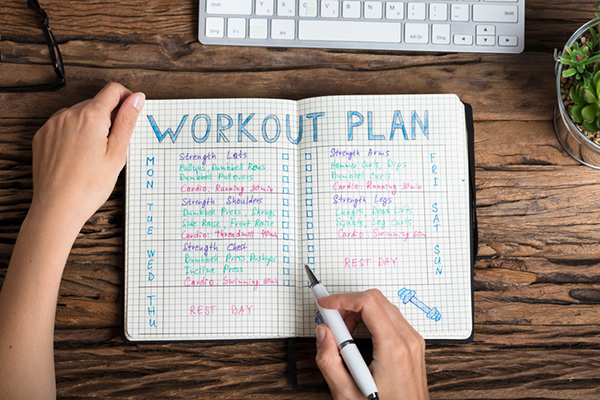 WORKOUT PLAN
MON
Strength Lats
Pullups, Dumbbell Rows
Dumbbell Pullovers
Cardio: Running 30min
TUE
Strength Shoulders
Dumbbell Press, Shrugs
Side Raise, Front Raise
Cardio: Threadmill 40min
WED
Strength Chest
Dumbbell Press, Pushups
Incline Press
Cardio: Swimming 60min
THU
REST DAY
FRI
Strength Arms
Hammer Curls, Dips
Dumbbell Curls
Cardio: Running 30min
SAT
Strength Legs
Lunges, Dead Lifts
Squats, Leg Curls
Cardio: Swimming 60min
SUN
REST DAY